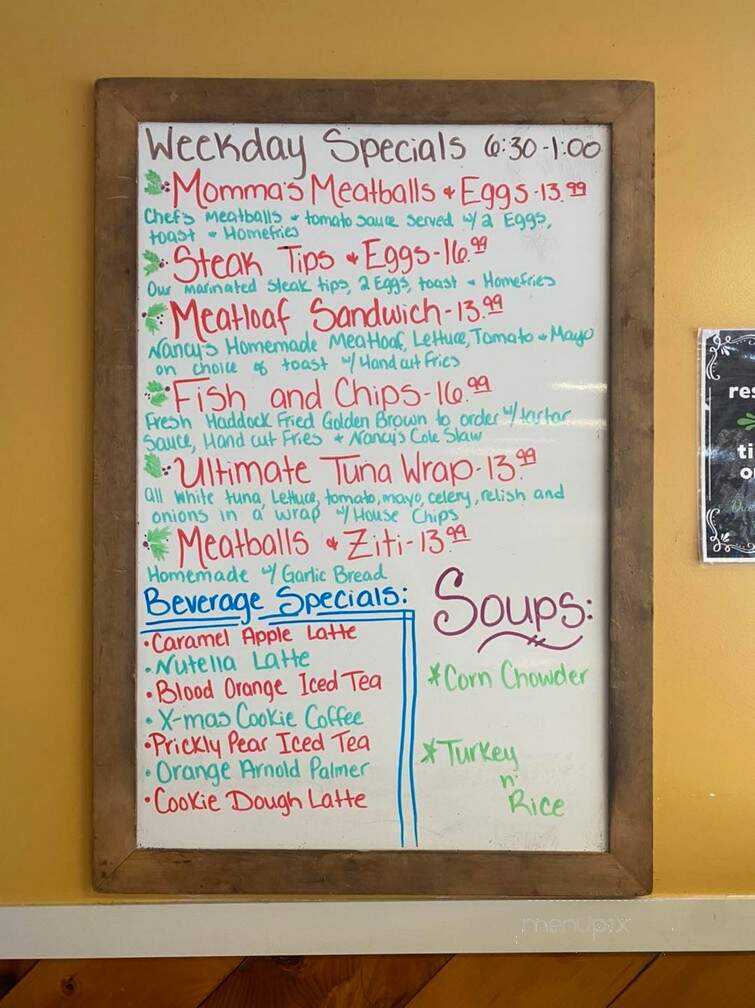 Weekday Specials 6:30-1:00
Momma's Meatballs & Eggs-13.99
Chef's Meatballs & tomato sauce served w/ 2 Eggs,
toast & Homefries
Steak Tips & Eggs-16.99
Our marinated steak tips, 2 Eggs, toast & Homefries
Meatloaf Sandwich-13.99
Nancy's Homemade Meatloaf, Lettuce, Tomato & Mayo
on choice of toast w/ Hand cut Fries
Fish and Chips-16.99
Fresh Haddock Fried Golden Brown to order w/ tartar
Sauce, Hand cut Fries & Nancy's Cole Slaw
Ultimate Tuna Wrap-13.99
all white tuna, Lettuce, tomato, mayo, celery, relish and
onions in a wrap w/ House Chips
Meatballs & Ziti-13.99
Homemade w/ Garlic Bread
Beverage Specials:
•Caramel Apple Latte
•Nutella Latte
•Blood Orange Iced Tea
•X-mas Cookie Coffee
•Prickly Pear Iced Tea
•Orange Arnold Palmer
•Cookie Dough Latte
Soups:
*Corn Chowder
*Turkey
n'
Rice
res
ti
o
menupix